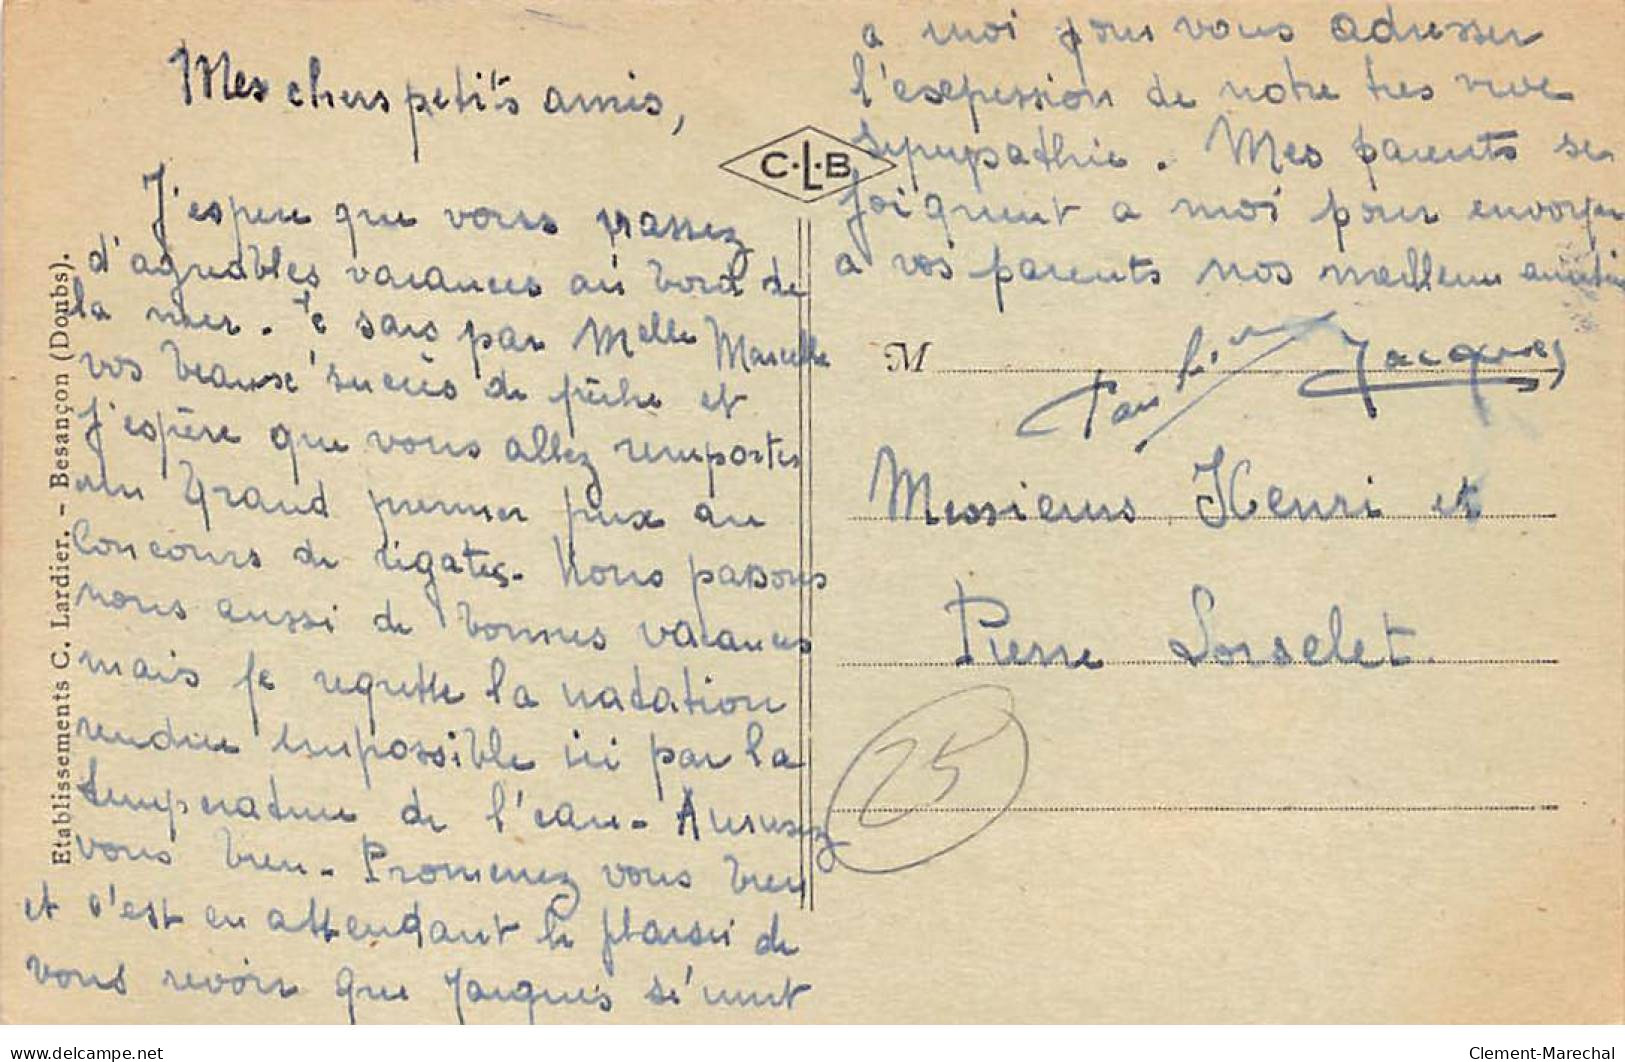 Mes chers petits amis,
J'espère que vous passez
d'agréables vacances au bord de
la mer. Je sais par Melle Marcelle
vos beaux succès de pêche et
J'espère que vous allez remporter
un Grand premier prix au
Concours de régates. Nous passons
nous aussi de bonnes vacances
mais je regrette la natation
rendue impossible ici par la
température de l'eau. Amusez
vous bien. Promenez vous bien
et c'est en attendant le plaisir de
vous revoir que Jacques s'unit
a moi pour vous adresser
l'expression de notre tres vive
sympathie. Mes parents se
joignent a moi pour envoyer
a vos parents nos meilleurs
Jacques
C·L·B
M
Messieurs Henri et
Pierre Lorselet.
25
Etablissements C. Lardier. - Besançon (Doubs).
www.delcampe.net
Clement-Marechal